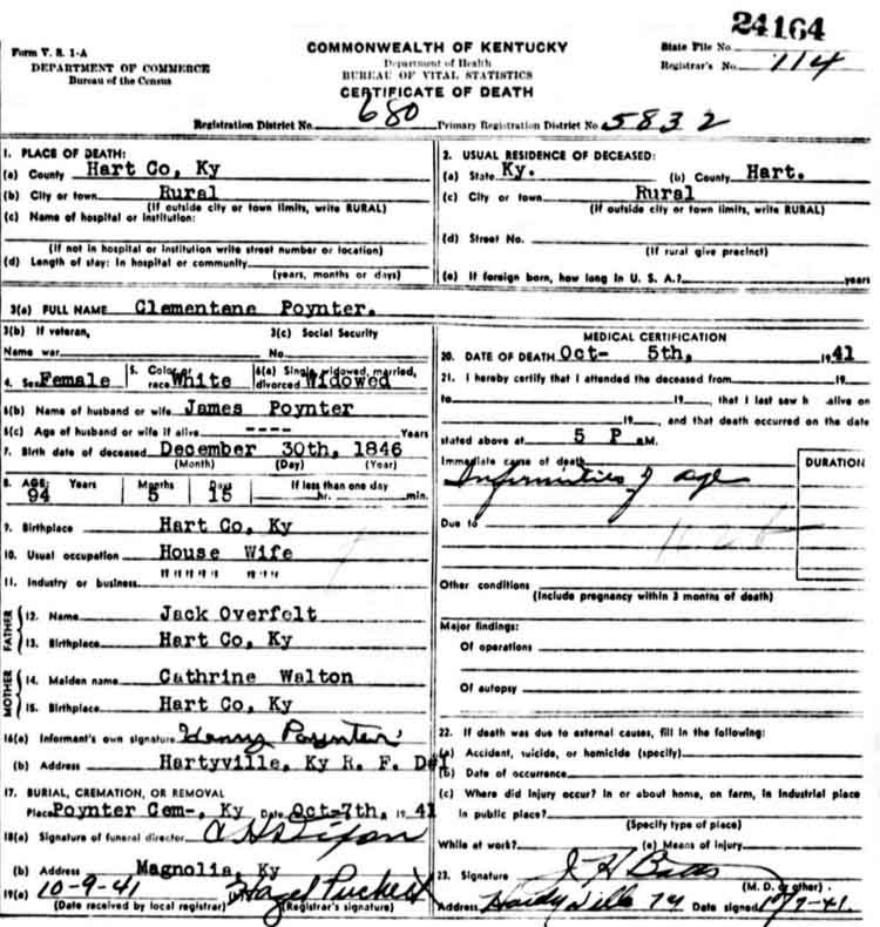 24164
Form V. S. 1-A
DEPARTMENT OF COMMERCE
Bureau of the Census
COMMONWEALTH OF KENTUCKY
Department of Health
BUREAU OF VITAL STATISTICS
CERTIFICATE OF DEATH
State File No.
Registrar's No. 114
Registration District No. 680 Primary Registration District No. 5832
1. PLACE OF DEATH:
(a) County Hart Co, Ky
(b) City or town Rural
(If outside city or town limits, write RURAL)
(c) Name of hospital or institution:
(If not in hospital or institution write street number or location)
(d) Length of stay: In hospital or community
(years, months or days)
2. USUAL RESIDENCE OF DECEASED:
(a) State Ky. (b) County Hart.
(c) City or town Rural
(If outside city or town limits, write RURAL)
(d) Street No.
(If rural give precinct)
(e) If foreign born, how long in U. S. A.? years
3(a) FULL NAME Clementene Poynter.
3(b) If veteran, 3(c) Social Security
Name war No
4. Sex Female 5. Color or race White 6(a) Single, widowed, married, divorced Widowed
6(b) Name of husband or wife James Poynter
6(c) Age of husband or wife if alive ---- Years
7. Birth date of deceased December 30th, 1846
(Month) (Day) (Year)
8. AGE: Years Months Days If less than one day
94 5 15 hr. min.
9. Birthplace Hart Co, Ky
10. Usual occupation House Wife
11. Industry or business """"" """"
FATHER
12. Name Jack Overfelt
13. Birthplace Hart Co, Ky
MOTHER
14. Maiden name Cathrine Walton
15. Birthplace Hart Co, Ky
16(a) Informant's own signature Henry Poynter
(b) Address Hartyville, Ky R. F. D#1
17. BURIAL, CREMATION, OR REMOVAL
Place Poynter Cem-, Ky Date Oct-7th, 1941
18(a) Signature of funeral director
(b) Address Magnolia, Ky
19(a) 10-9-41 Hazel Puckett
(Date received by local registrar) (Registrar's signature)
MEDICAL CERTIFICATION
20. DATE OF DEATH Oct- 5th, 1941
21. I hereby certify that I attended the deceased from 19
to 19, that I last saw h alive on
19, and that death occurred on the date
stated above at 5 P M.
Immediate cause of death DURATION
Infirmities of age
Due to
Other conditions
(Include pregnancy within 3 months of death)
Major findings:
Of operations
Of autopsy
22. If death was due to external causes, fill in the following:
(a) Accident, suicide, or homicide (specify)
(b) Date of occurrence
(c) Where did injury occur? In or about home, on farm, in industrial place
in public place?
(Specify type of place)
While at work? (e) Means of injury
23. Signature J H Batts
(M. D. or other)
Address Hardyville Ky Date signed 10/7-41.